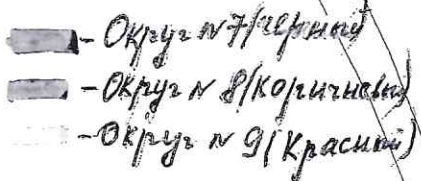 - Округ N 7 (Черный)
- Округ N 8 (Коричневый)
- Округ N 9 (Красный)